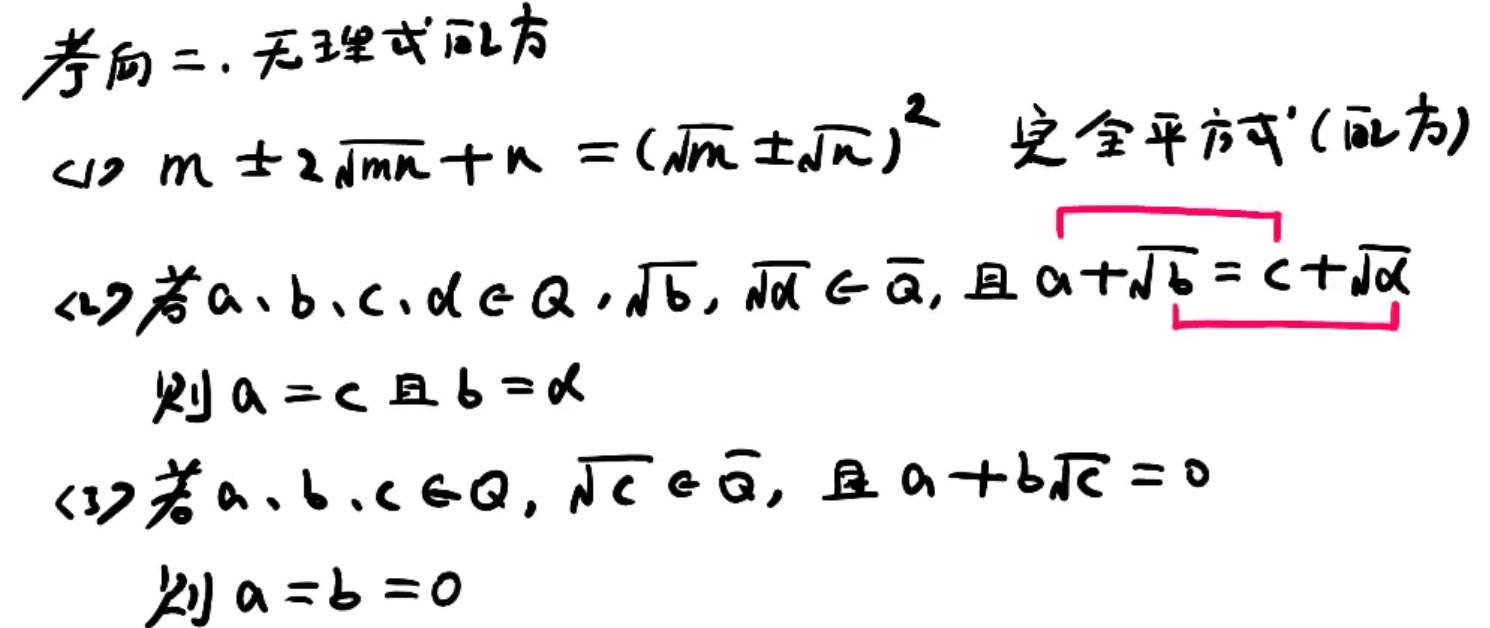 考向二.无理式配方
<1> m ± 2√mn + n = (√m ± √n)² 完全平方式(配方)
<2> 若a、b、c、d ∈ Q,√b,√d ∈ Q̅,且a+√b = c+√d
则a=c且b=d
<3> 若a、b、c ∈ Q,√c ∈ Q̅,且a+b√c=0
则a=b=0